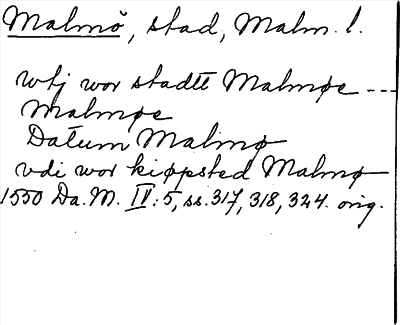 Malmö, stad, Malm. l.
wtj wor stadtt Malmøe ---
Malmøe
Datum Malmø
vdi wor kiøpsted Malmø
1550 Da. M. IV: 5, ss. 317, 318, 324. orig.